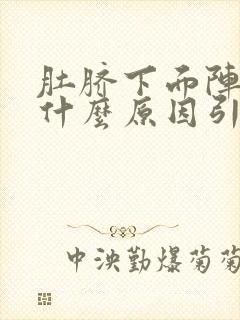 肚脐下而陣
什麼原因引
中泱勤爆菊菊